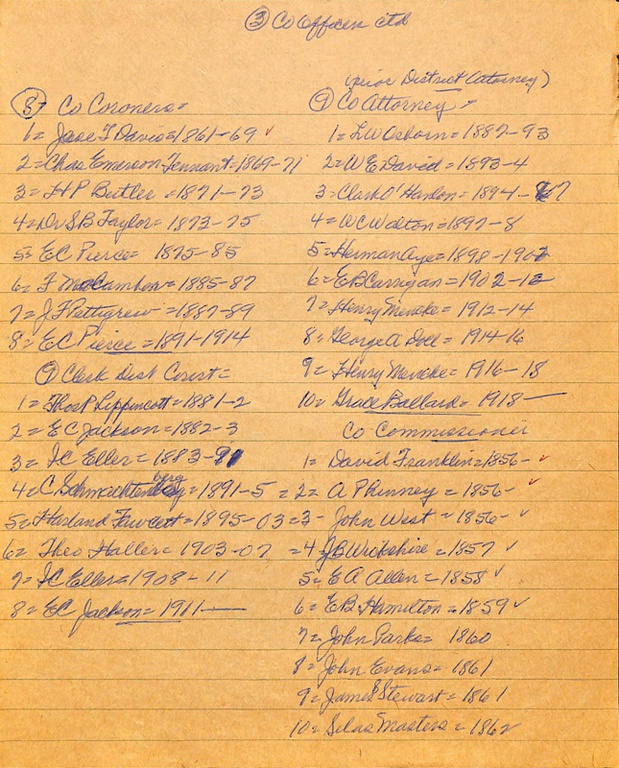 ③ Co Officers ctd
8 Co Coroners=
1= Jase T Davis=1861-69 ✓
2=Chas Emerson Tennant=1869-71
3= H P Butler =1871-73
4=Dr S B Taylor= 1873-75
5= E C Pierce= 1875-85
6= F = 1885-87
7= J F Pettigrew =1887-89
8= E C Pierce =1891-1914
⑨ Clerk Dist Court=
1= Thos P Lippincott=1881-2
2= E C Jackson=1882-3
3= I C Eller= 1883-91
4=C =1891-5
5=Harland Fawcett=1895-03
6= Theo Haller= 1903-07
7= I C Eller=1908-11
8= E C Jackson= 1911—
(prior District Attorney)
⑨ Co Attorney=
1= L W Osborn= 1887-93
2= W E David= 1893-4
3=Clark O'Hanlon= 1894-7
4= W C Walton=1897-8
5=Herman Aye=1898-190
6= E B Carrigan=1902-12
7=Henry Mencke= 1912-14
8= George A Doll= 1914-16
9= Henry Mencke= 1916-18
10= Grace Ballard= 1918—
Co Commissioner
1= David Franklin=1856- ✓
2= A Phinney= 1856- ✓
=3- John West = 1856- ✓
=4= J B Wickshire = 1857 ✓
5= E A Allen= 1858 ✓
6= E B Hamilton= 1859 ✓
7= John Parks= 1860
8= John Evans= 1861
9= James S Stewart= 1861
10= Silas Masters= 1862